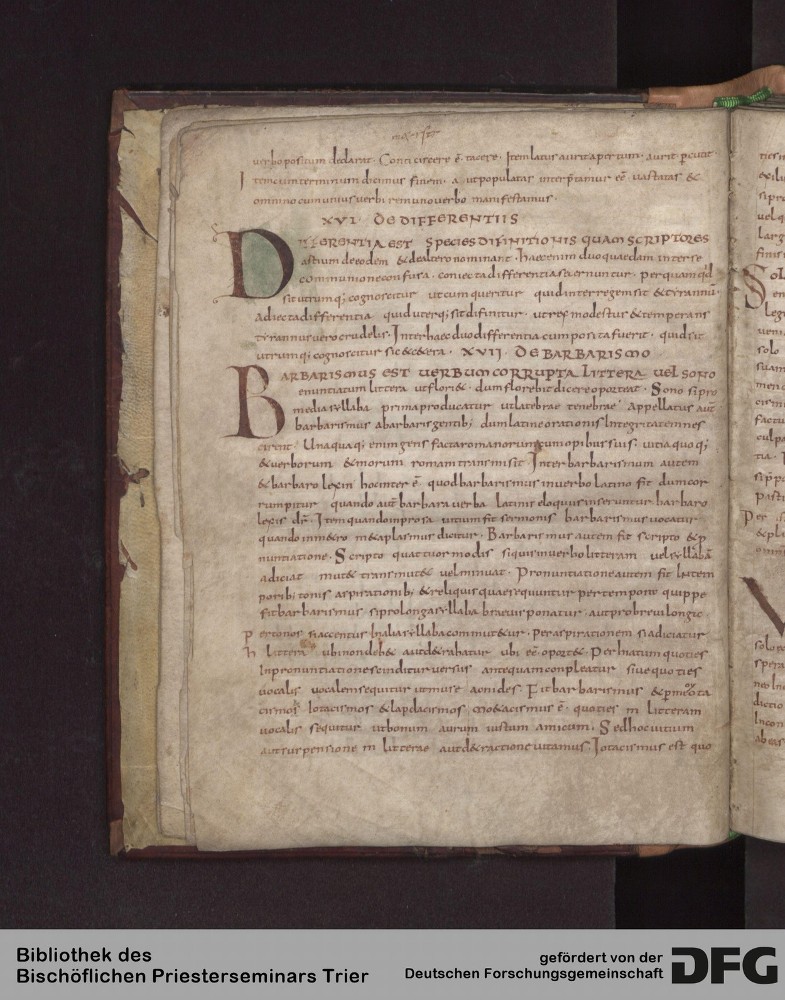 uerbo positum declarat. Conticiscere ē. tacere. Item latus aurit apertum. aurit pcutit.
Item cum terminum dicimus finem. a ut populatas interp̄tamur eē. uastatas &
omnino cum unius uerbi rem uno uerbo manifestamus.
XVI. DE DIFFERENTIIS
DIFFERENTIA EST SPECIES DIFINITIONIS QUAM SCRIPTORES
artium de eodem & de altero nominant. haec enim duo quaedam inter se
communione confusa. coniecta differentia secernuntur. per quam qd
sit utrumq; cognoscitur. ut cum queritur quid inter regem sit & tyrannū.
Adiecta differentia quid uterq; sit difinitur. ut rex modestus & temperans
tyrannus uero crudelis. Inter haec duo differentia cum posita fuerit. quid sit
utrumq; cognoscitur sic & cetera. XVII DE BARBARISMO
BARBARISMUS EST UERBUM CORRUPTA LITTERA UEL SONO
enuntiatum littera ut flori&. dum florebit dicere oporteat. Sono si pro
media syllaba prima producatur ut latebrae tenebrae. Appellatus aut
barbarismus a barbaris gentib; dum latine orationis integritatem nes
cirent. Unaquaq; enim gens facta romanorum cum opibus suis. uitia quoq;
& uerborum & morum romam transmisit. Inter barbarismum autem
& barbarolexin hoc inter ē. quod barbarismus in uerbo latino fit dum cor
rumpitur. quando aut̄ barbara uerba latinis eloquiis inseruntur barbaro
lexis dr̄. Item quando in prosa uitium fit sermonis barbarismus uocatur
quando in m&ro m&aplasmus dicitur. Barbarismus autem fit scripto & p
nuntiatione. Scripto quattuor modis si quis in uerbo litteram uel syllabā
adiciat mut& transmut& uel minuat. Pronuntiatione autem fit In tem
porib; tonis aspirationib; & reliquis quae sequuntur per tempora quippe
fit barbarismus si pro longa syllaba breuis ponatur. aut pro breui longa.
Per tonos si accentus In alia syllaba commut&ur. Per aspirationem si adiciatur
h littera ubi non deb&. aut d&rahatur ubi eē oport&. Per hiatum quoties
In pronuntiatione scinditur uersus antequam conpleatur siue quoties
uocalis uocalem sequitur ut musae aonides. Fit barbarismus & per
cismos Iotacismos & lapdacismos. mo&acismus ē. quoties m litteram
uocalis sequitur ut bonum aurum iustum amicum. Sed hoc uitium
aut suspensione m litterae aut d&ractione uitamus. Iotacismus est quo
Bibliothek des
Bischöflichen Priesterseminars Trier
gefördert von der
Deutschen Forschungsgemeinschaft
DFG